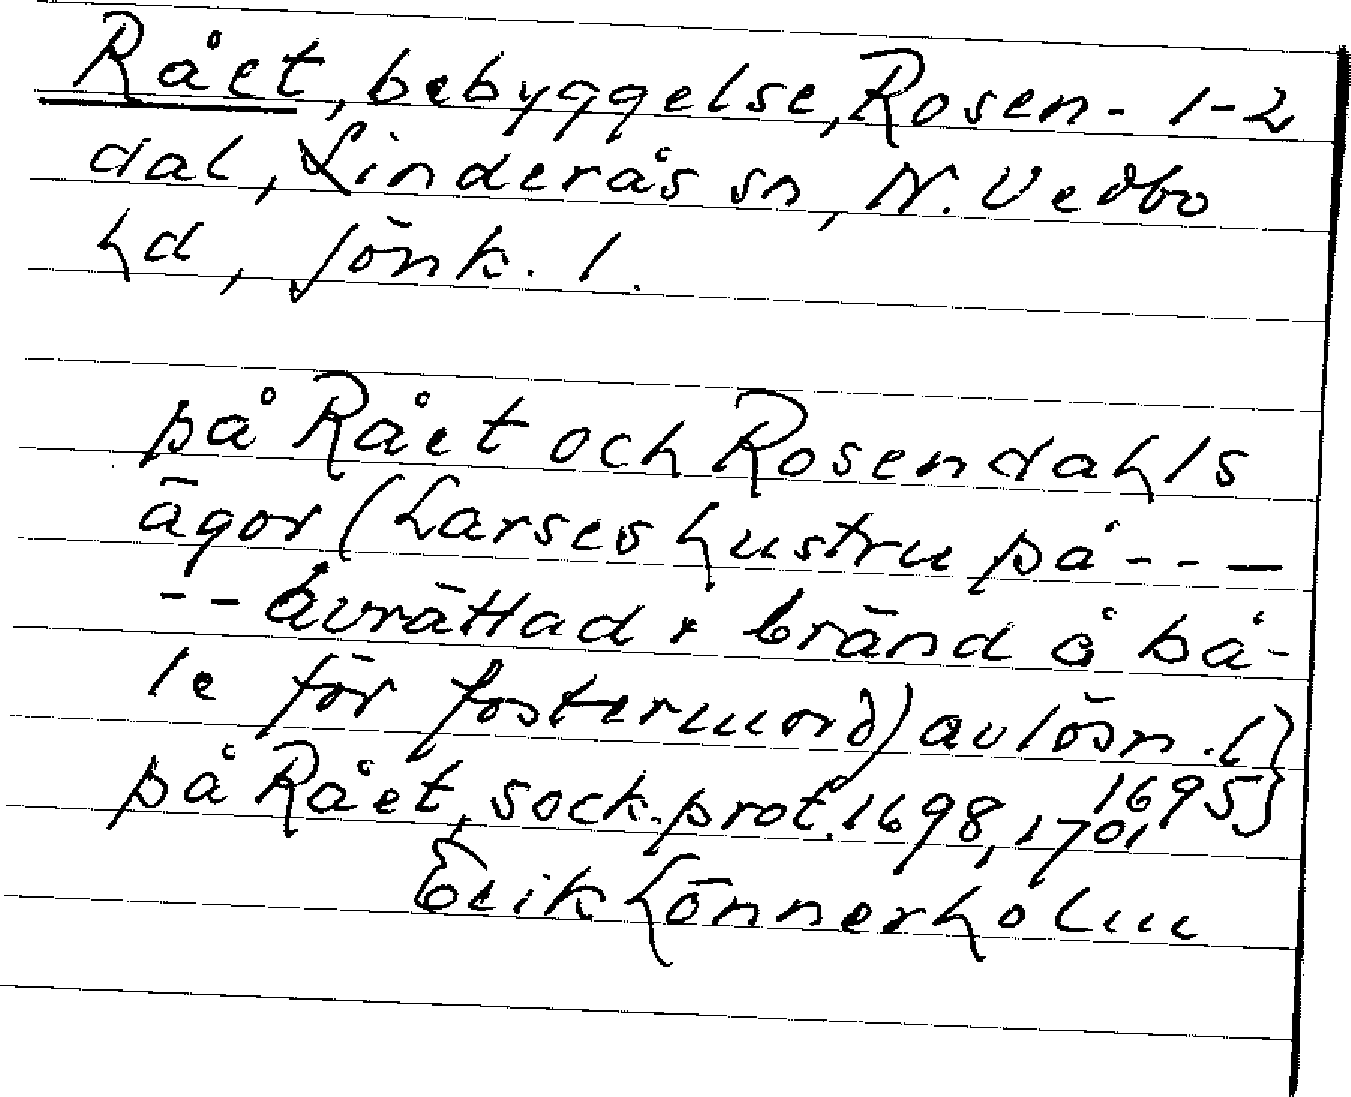 Rået, bebyggelse, Rosen- 1-2
dal, Linderås sn, N. Vedbo
hd, Jönk. l.
på Rået och Rosendahls
ägor (Larses hustru på - - -
- - avrättad & bränd å bå-
le för fostermord) avlösn. l}
1695}
på Rået, sock.prot. 1698, 1701
Erik Lönnerholm